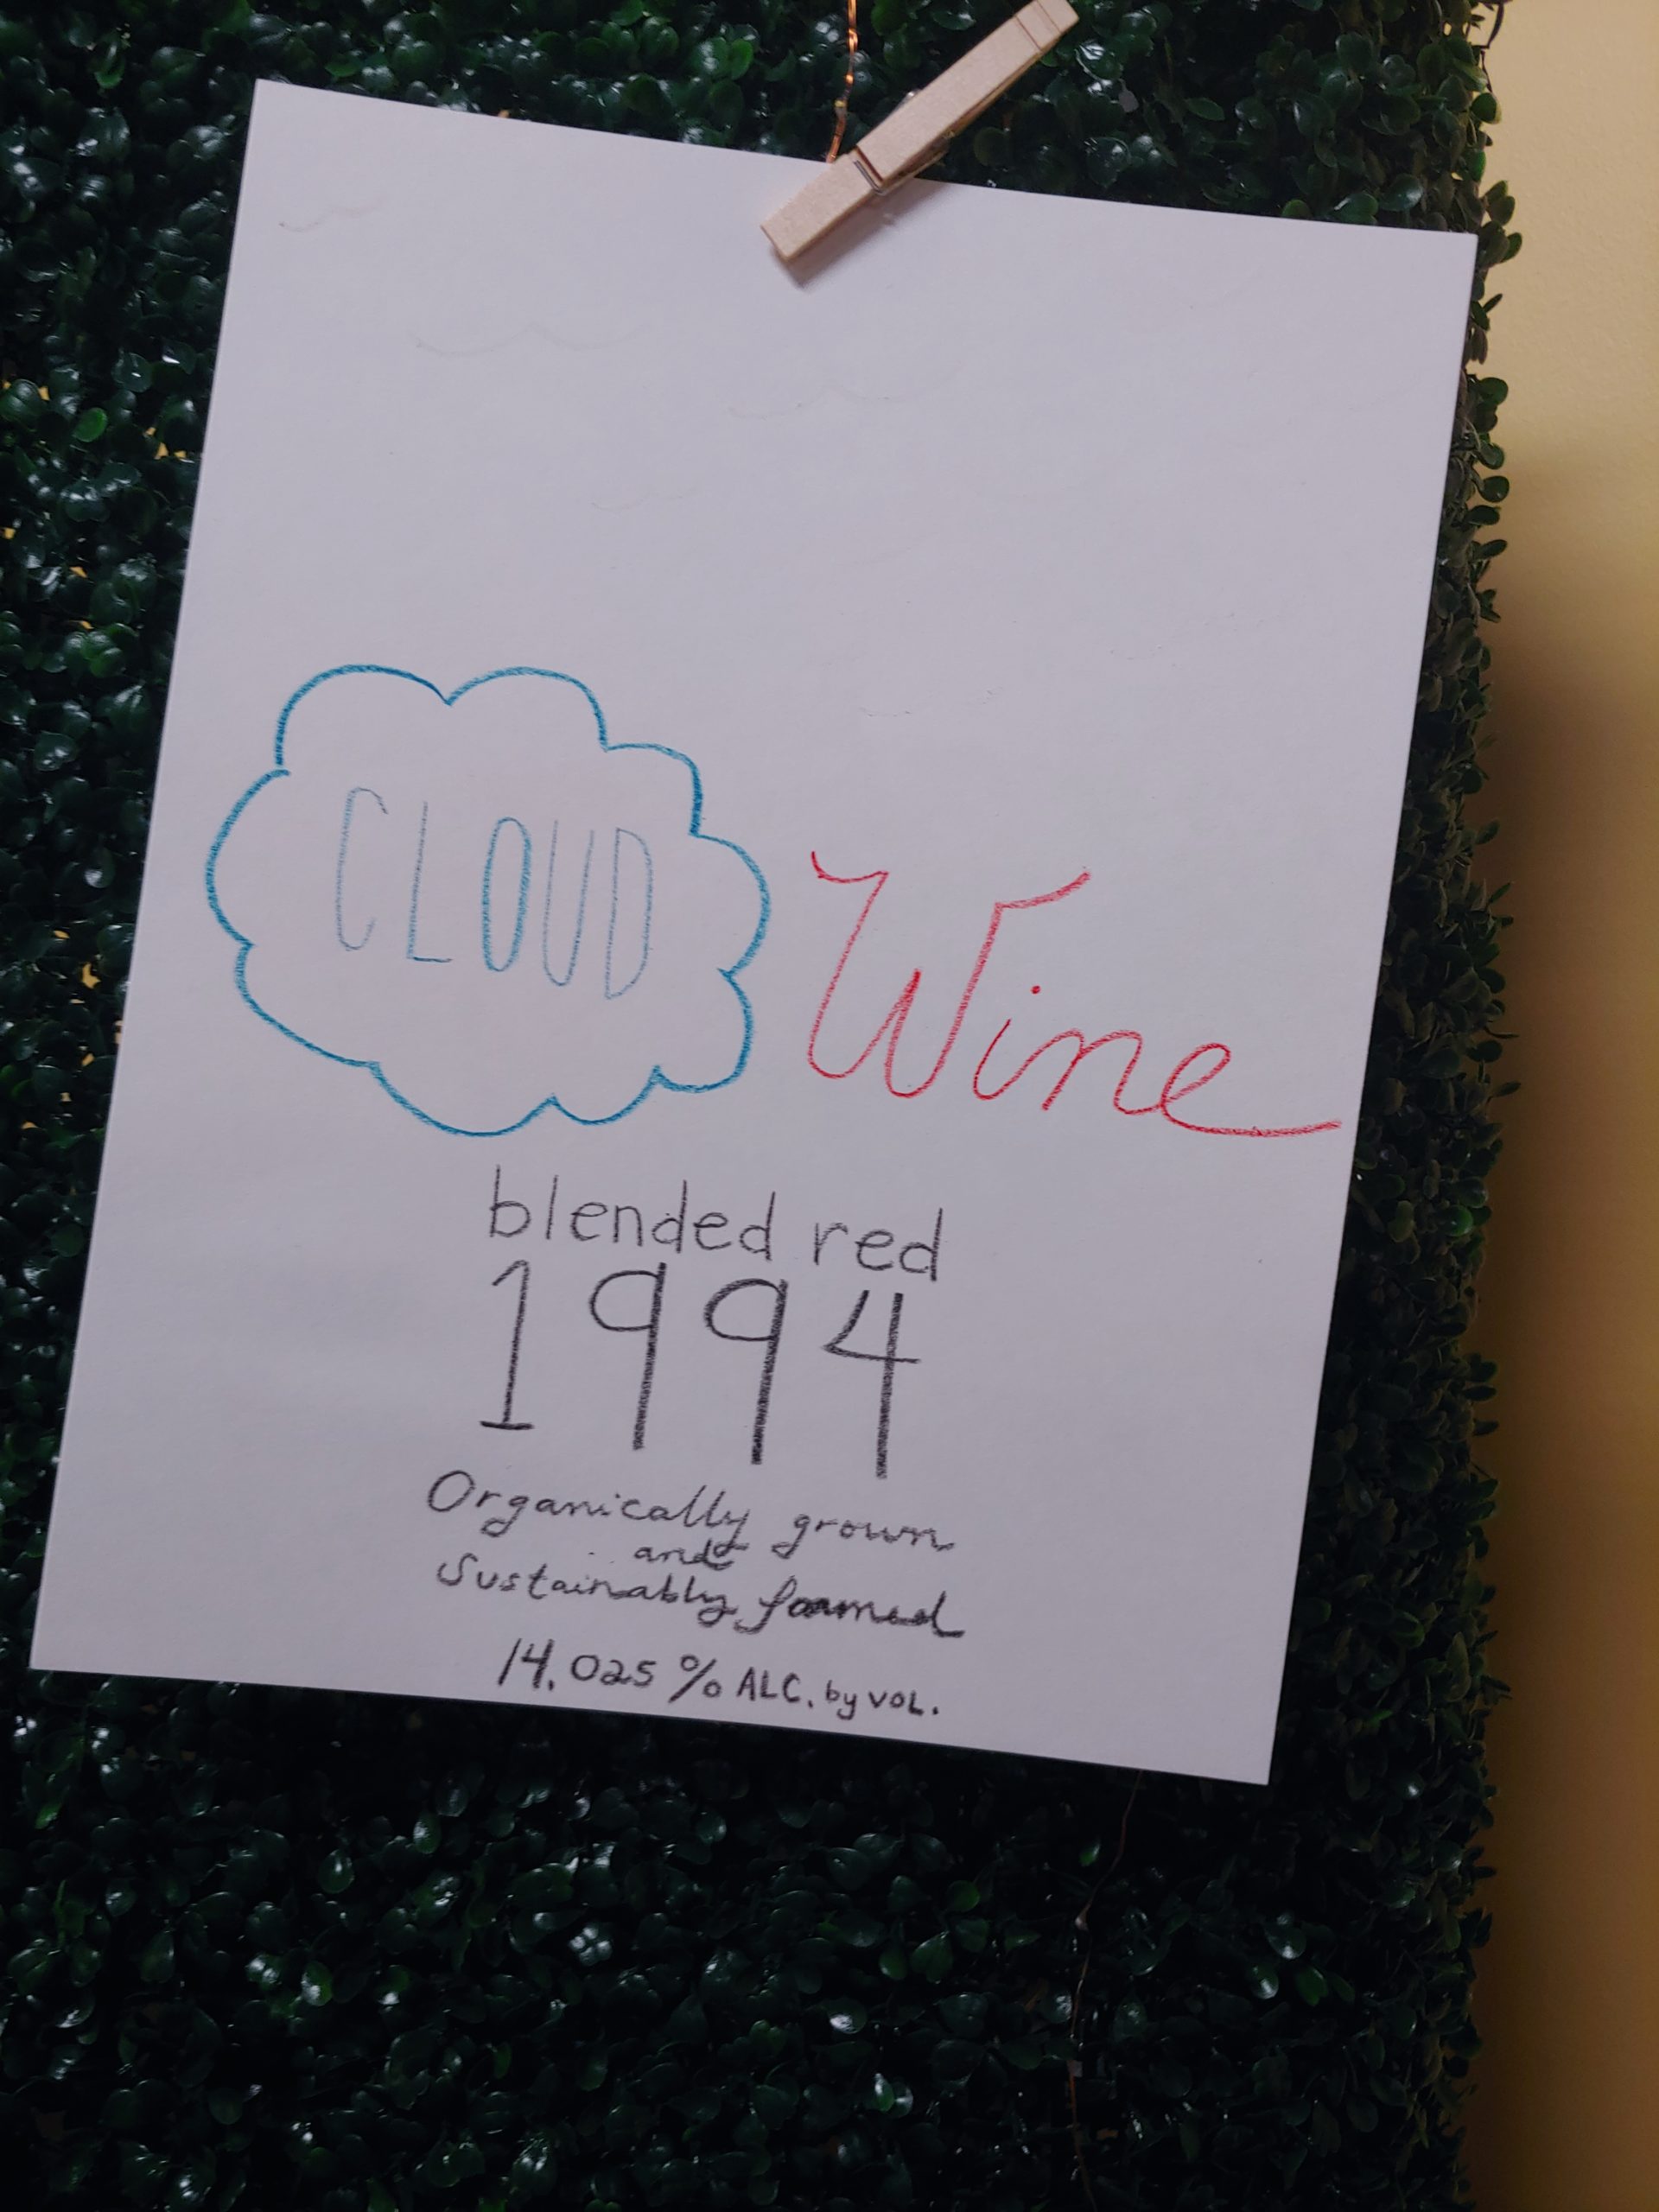 CLOUD Wine
blended red
1994
Organically grown
and
Sustainably farmed
14.025% ALC. by VOL.